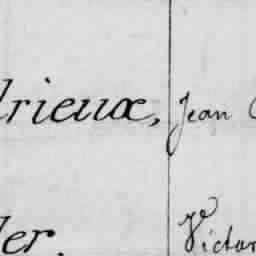 drieux, Jean
ler. Victor